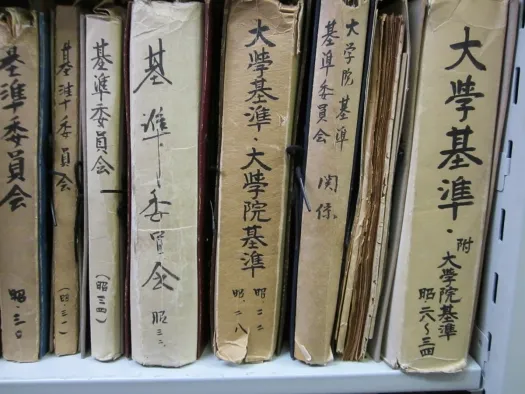 基準委員会
昭.三〇
基準委員会
(昭.三一)
基準委員会
(昭三四)
基準委員会
昭三二
大學基準 大學院基準
昭.二二
昭.二八
大学院基準
基準委員会 関係
大學基準.附
大學院基準
昭二八〜三四